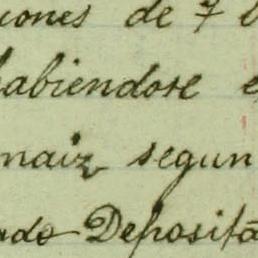 iones de 7
abiendose e
maiz segun
ado Deposita